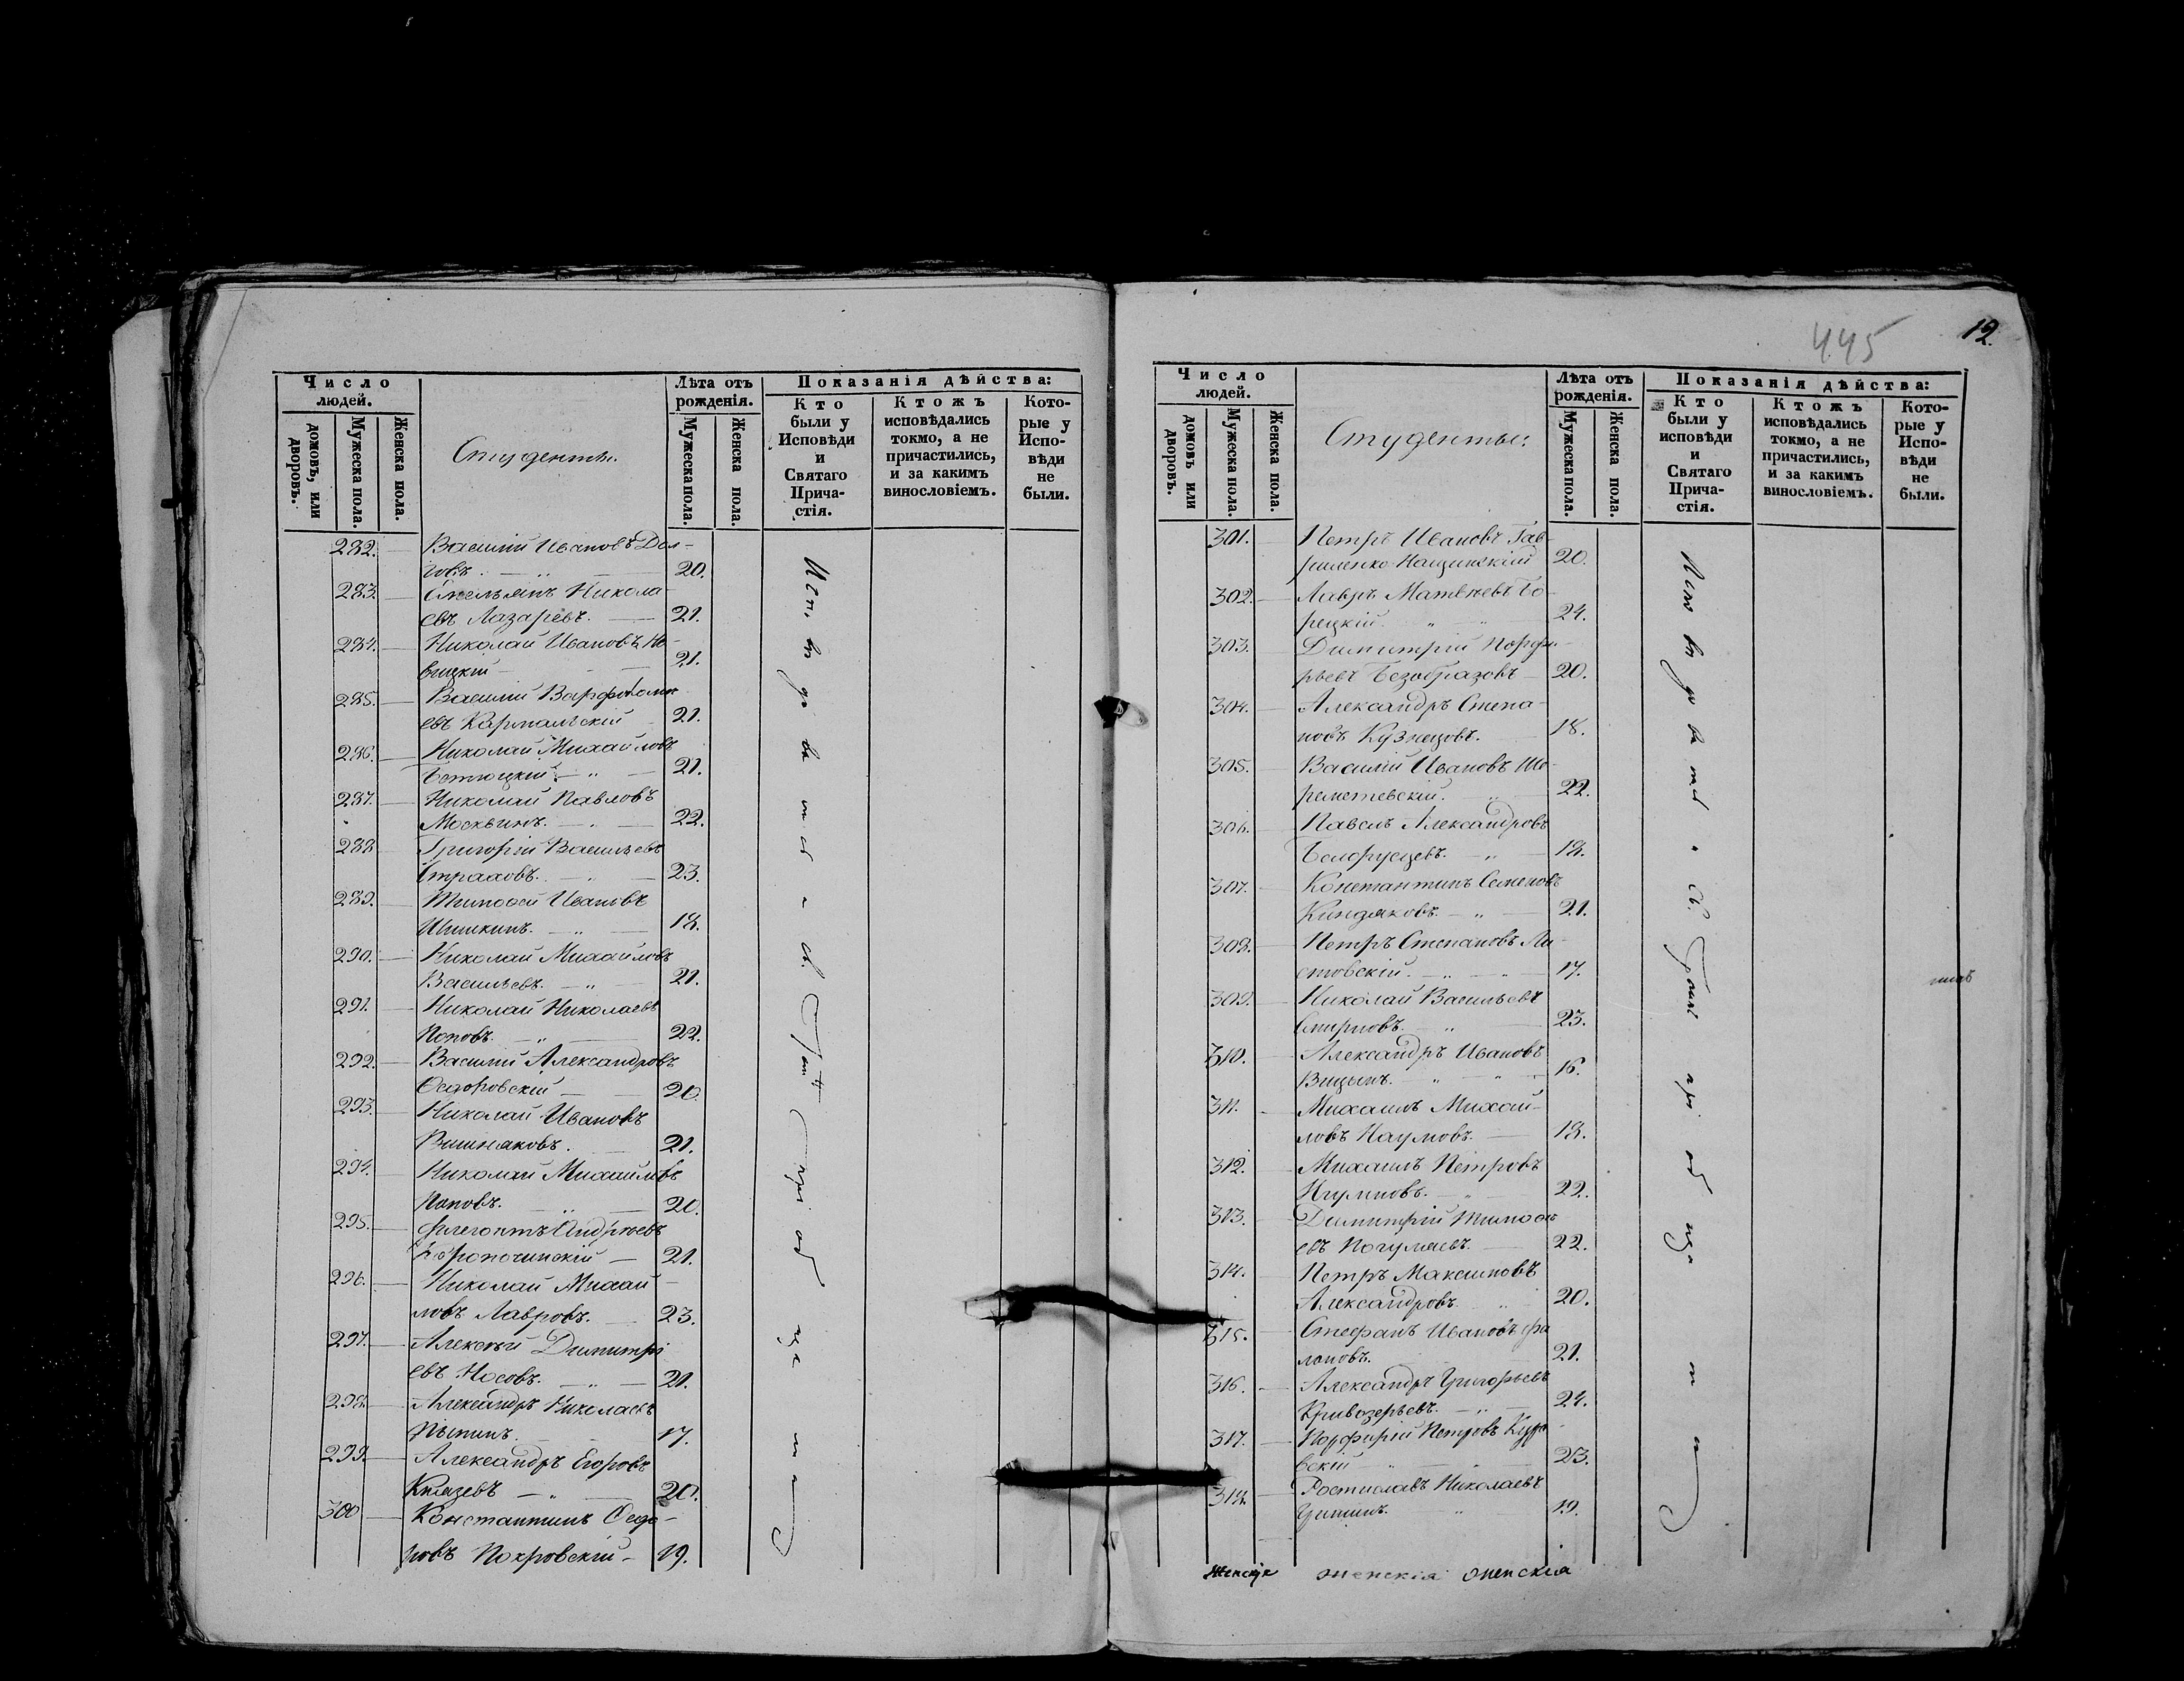 Число людей.
домовъ, или дворовъ.
Мужеска пола.
Женска пола.
Студенты.
Лѣта отъ рожденія.
Мужеска пола.
Женска пола.
Показанія дѣйства:
Кто были у Исповѣди и Святаго Прича-стія.
Ктожъ исповѣдались токмо, а не причастились, и за какимъ винословіемъ.
Кото-рые у Испо-вѣди не были.
282. Василій Ивановъ Дол-
говъ. 20.
283. Емельянъ Никола-
евъ Лазаревъ. 21.
284. Николай Ивановъ Но-
вицкій 21.
285. Василій Варфоломе-
евъ Кармальскій 21.
286. Николай Михайловъ
21.
287. Николай Павловъ
Москвинъ. 22.
288. Григорій Васильевъ
Страховъ. 23.
289. Тимоѳей Ивановъ
Шишкинъ. 18.
290. Николай Михайловъ
Васильевъ. 21.
291. Николай Николаевъ
Поповъ. 22.
292. Василій Александровъ
20.
293. Николай Ивановъ
Вишняковъ. 21.
294. Николай Михайловъ
Поповъ. 20.
295. Флегонтъ Андреевъ
21.
296. Николай Михай-
ловъ Лавровъ. 23.
297. Алексѣй Димитрі
евъ Носовъ. 21.
298. Александръ Николаевъ
Пыпинъ. 17.
299. Александръ Егоровъ
Князевъ 20.
300 Константинъ Ѳедо-
ровъ Покровскій 19.
445
12.
Число людей.
домовъ или дворовъ.
Мужеска пола.
Женска пола.
Студенты:
Лѣта отъ рожденія.
Мужеска пола.
Женска пола.
Показанія дѣйства:
Кто были у исповѣди и Святаго Прича-стія.
Ктожъ исповѣдались токмо, а не причастились, и за какимъ винословіемъ.
Кото-рые у Испо-вѣди не были.
301. Петръ Ивановъ Гав-
риленко-Нащинскій 20.
302. Лавръ Матвѣевъ Бо-
рецкій. 24.
303. Димитрій Порфи-
рьевъ Безобразовъ 20.
304. Александръ Степа-
новъ Кузнецовъ. 18.
305. Василій Ивановъ Ше-
реметевскій. 22.
306. Павелъ Александровъ
Белорусцевъ. 18.
307. Константинъ Семеновъ
Киндяковъ. 21.
308. Петръ Степановъ Ли-
стовскій. 17.
309. Николай Васильевъ
Смирновъ. 23.
310. Александръ Ивановъ
Вицынъ. 16.
311. Михаилъ Михай-
ловъ Наумовъ. 18.
312. Михаилъ Петровъ
Игумновъ. 22.
313. Димитрій Тимоѳе
евъ Погуляевъ. 22.
314. Петръ Максимовъ
Александровъ. 20.
315. Стефанъ Ивановъ Фи
лоновъ. 21.
316. Александръ Григорьевъ
Кривозерьевъ. 24.
317. Порфирій Петровъ
вскій 23.
318. Ростиславъ Николаевъ
19.
женскія женскія